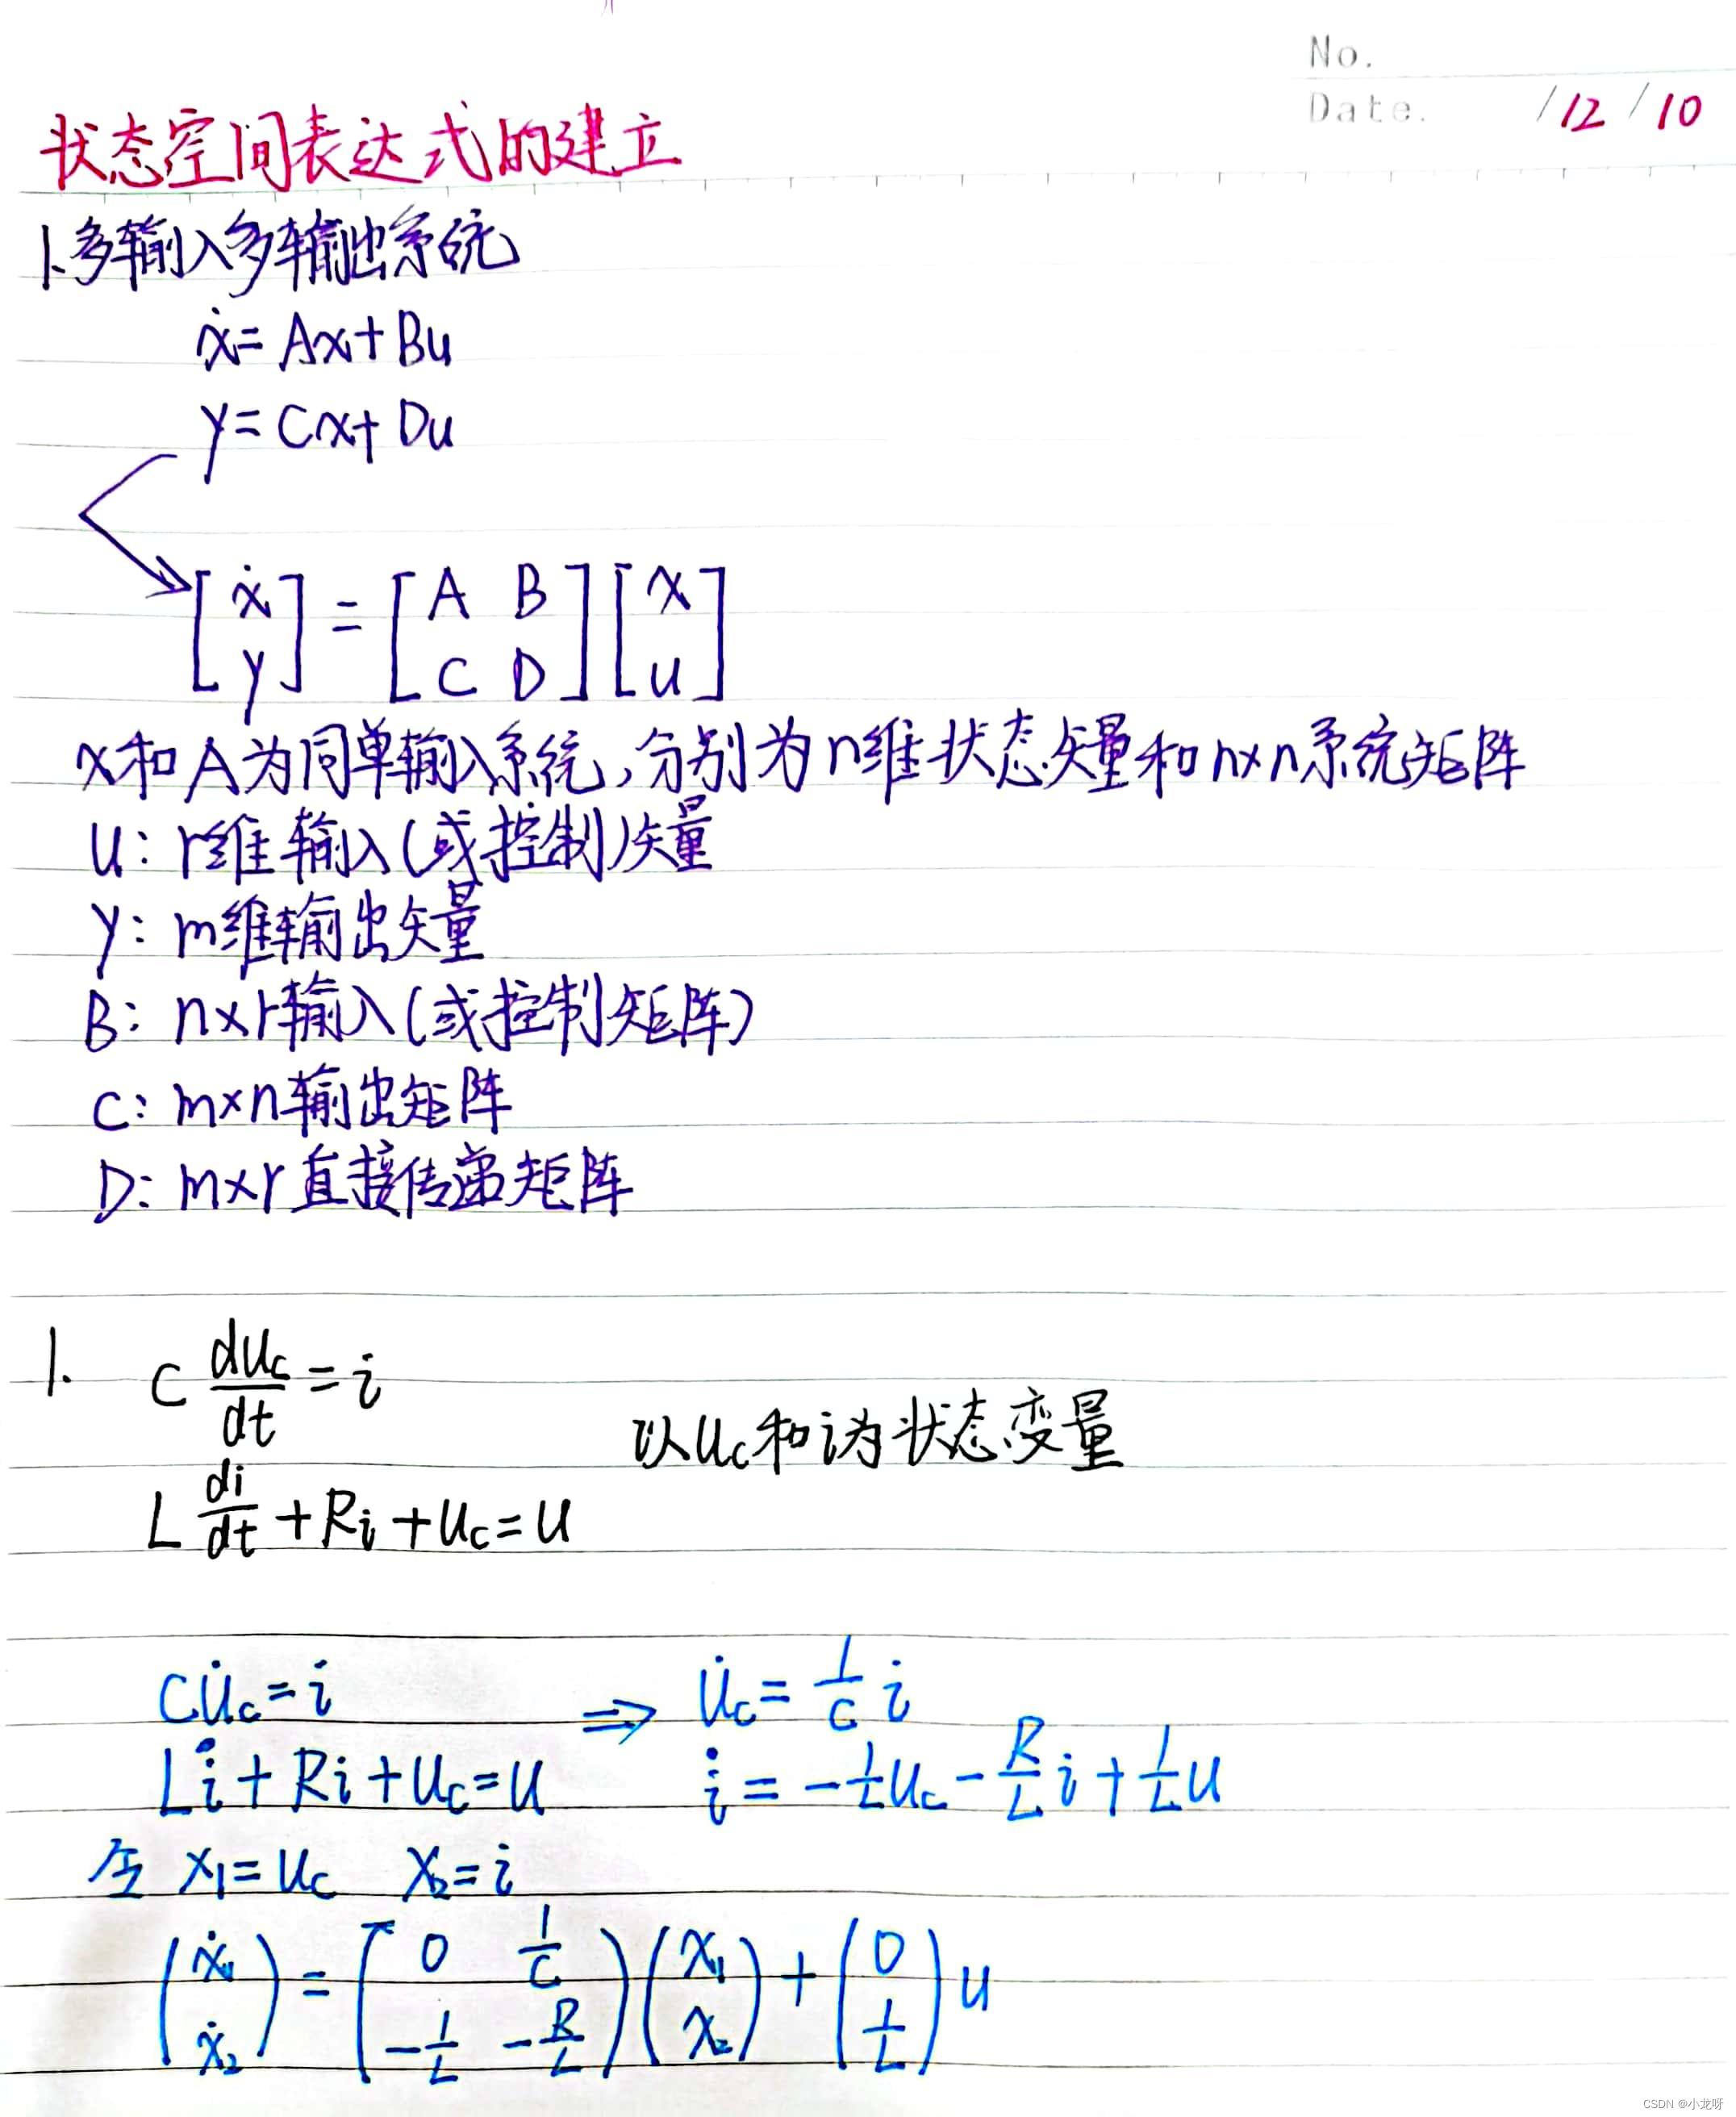 No.
Date. /12/10
状态空间表达式的建立
1.多输入多输出系统
ẋ=Ax+Bu
y=Cx+Du
[ẋ y] = [A B C D][x u]
x和A为同单输入系统,分别为n维状态矢量和n×n系统矩阵
u: r维输入(或控制)矢量
y: m维输出矢量
B: n×r输入(或控制矩阵)
C: m×n输出矩阵
D: m×r直接传递矩阵
1. C du_c/dt = i
以u_c和i为状态变量
L di/dt + Ri + u_c = u
Cu̇_c = i ⇒ u̇_c = 1/C i
Li̇ + Ri + u_c = u i̇ = -1/L u_c - R/L i + 1/L u
令 x₁=u_c x₂=i
(ẋ₁ ẋ₂) = (0 1/C -1/L -R/L)(x₁ x₂) + (0 1/L)u
CSDN @小龙呀